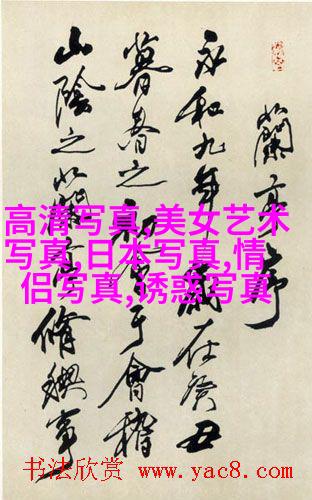 蘭亭序
永和九年歲在癸丑
暮春之初會于會稽
山陰之蘭亭脩禊事
高清写真,美女艺术
写真,日本写真,情
侣写真,诱惑写真
书法欣赏 www.yac8.com